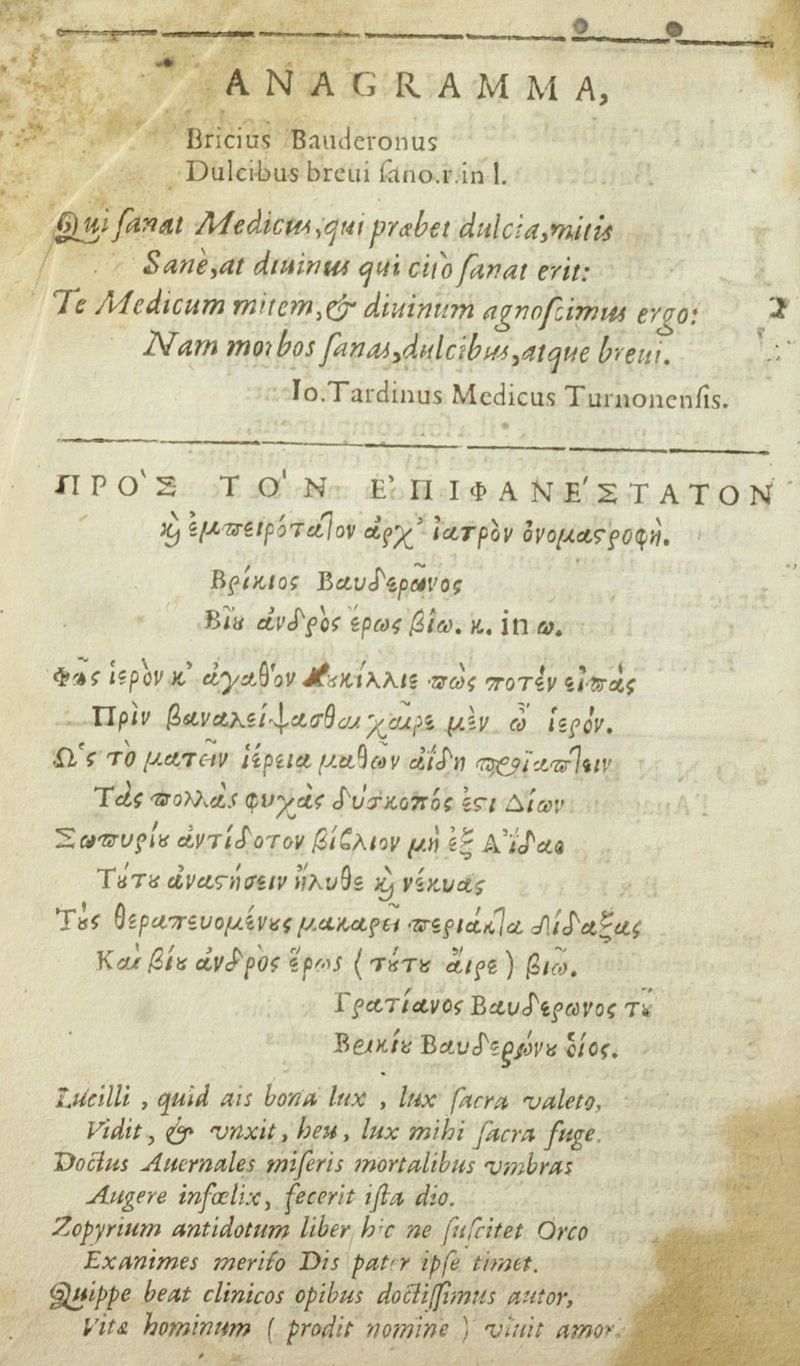 ANAGRAMMA,
Bricius Bauderonus
Dulcibus breui ſano.r.in l.
Qui ſanat Medicus, qui præbet dulcia, mitis
Sanè, at diuinus qui citò ſanat erit:
Te Medicum mitem, & diuinum agnoſcimus ergo:
Nam morbos ſanas, dulcibus, atque breui.
Io. Tardinus Medicus Turnonenſis.
ΠΡΟ'Σ ΤΟ'Ν Ε'ΠΙΦΑΝΕ'ΣΤΑΤΟΝ
ϗ ἐμπειρότατον ἀρχ' ἰατρὸν ὀνομαστροφή.
Βρίκιος Βαυδερῶνος
Βίȣ ἀνδρὸς ἔρως βίω. κ. in ω.
Φῶς ἱερὸν κ' ἀγαθὸν πῶς ποτέν εἶπας
Πρὶν χαῖρε μὲν ὦ ἱερόν.
Ὡς τὸ μαθὼν ἀίδη
Τὰς πολλὰς φυχὰς δύσκοπός ἐστι Δίων
Σωπυρίȣ ἀντίδοτον βίβλιον μὴ ἐξ Ἀΐδαο
Τȣ́τȣ ἀναστήσειν ἤλυθε ϗ νέκυας
Τὸς θεραπευομένȣς διδάξας
Καὶ βίȣ ἀνδρὸς ἔρως ( τȣ́τȣ ἄιρε ) βιῶ.
Γρατίανος Βαυδερωνος τȣ͂
Βρικίȣ Βαυδερῶνȣ ὑίος.
Lucilli, quid ais bona lux, lux ſacra valeto,
Vidit, & vnxit, heu, lux mihi ſacra fuge.
Doctus Auernales miſeris mortalibus vmbras
Augere infœlix, fecerit iſta dio.
Zopyrium antidotum liber hic ne ſuſcitet Orco
Exanimes merito Dis pater ipſe timet.
Quippe beat clinicos opibus doctiſſimus autor,
Vitæ hominum ( prodit nomine ) viuit amor.